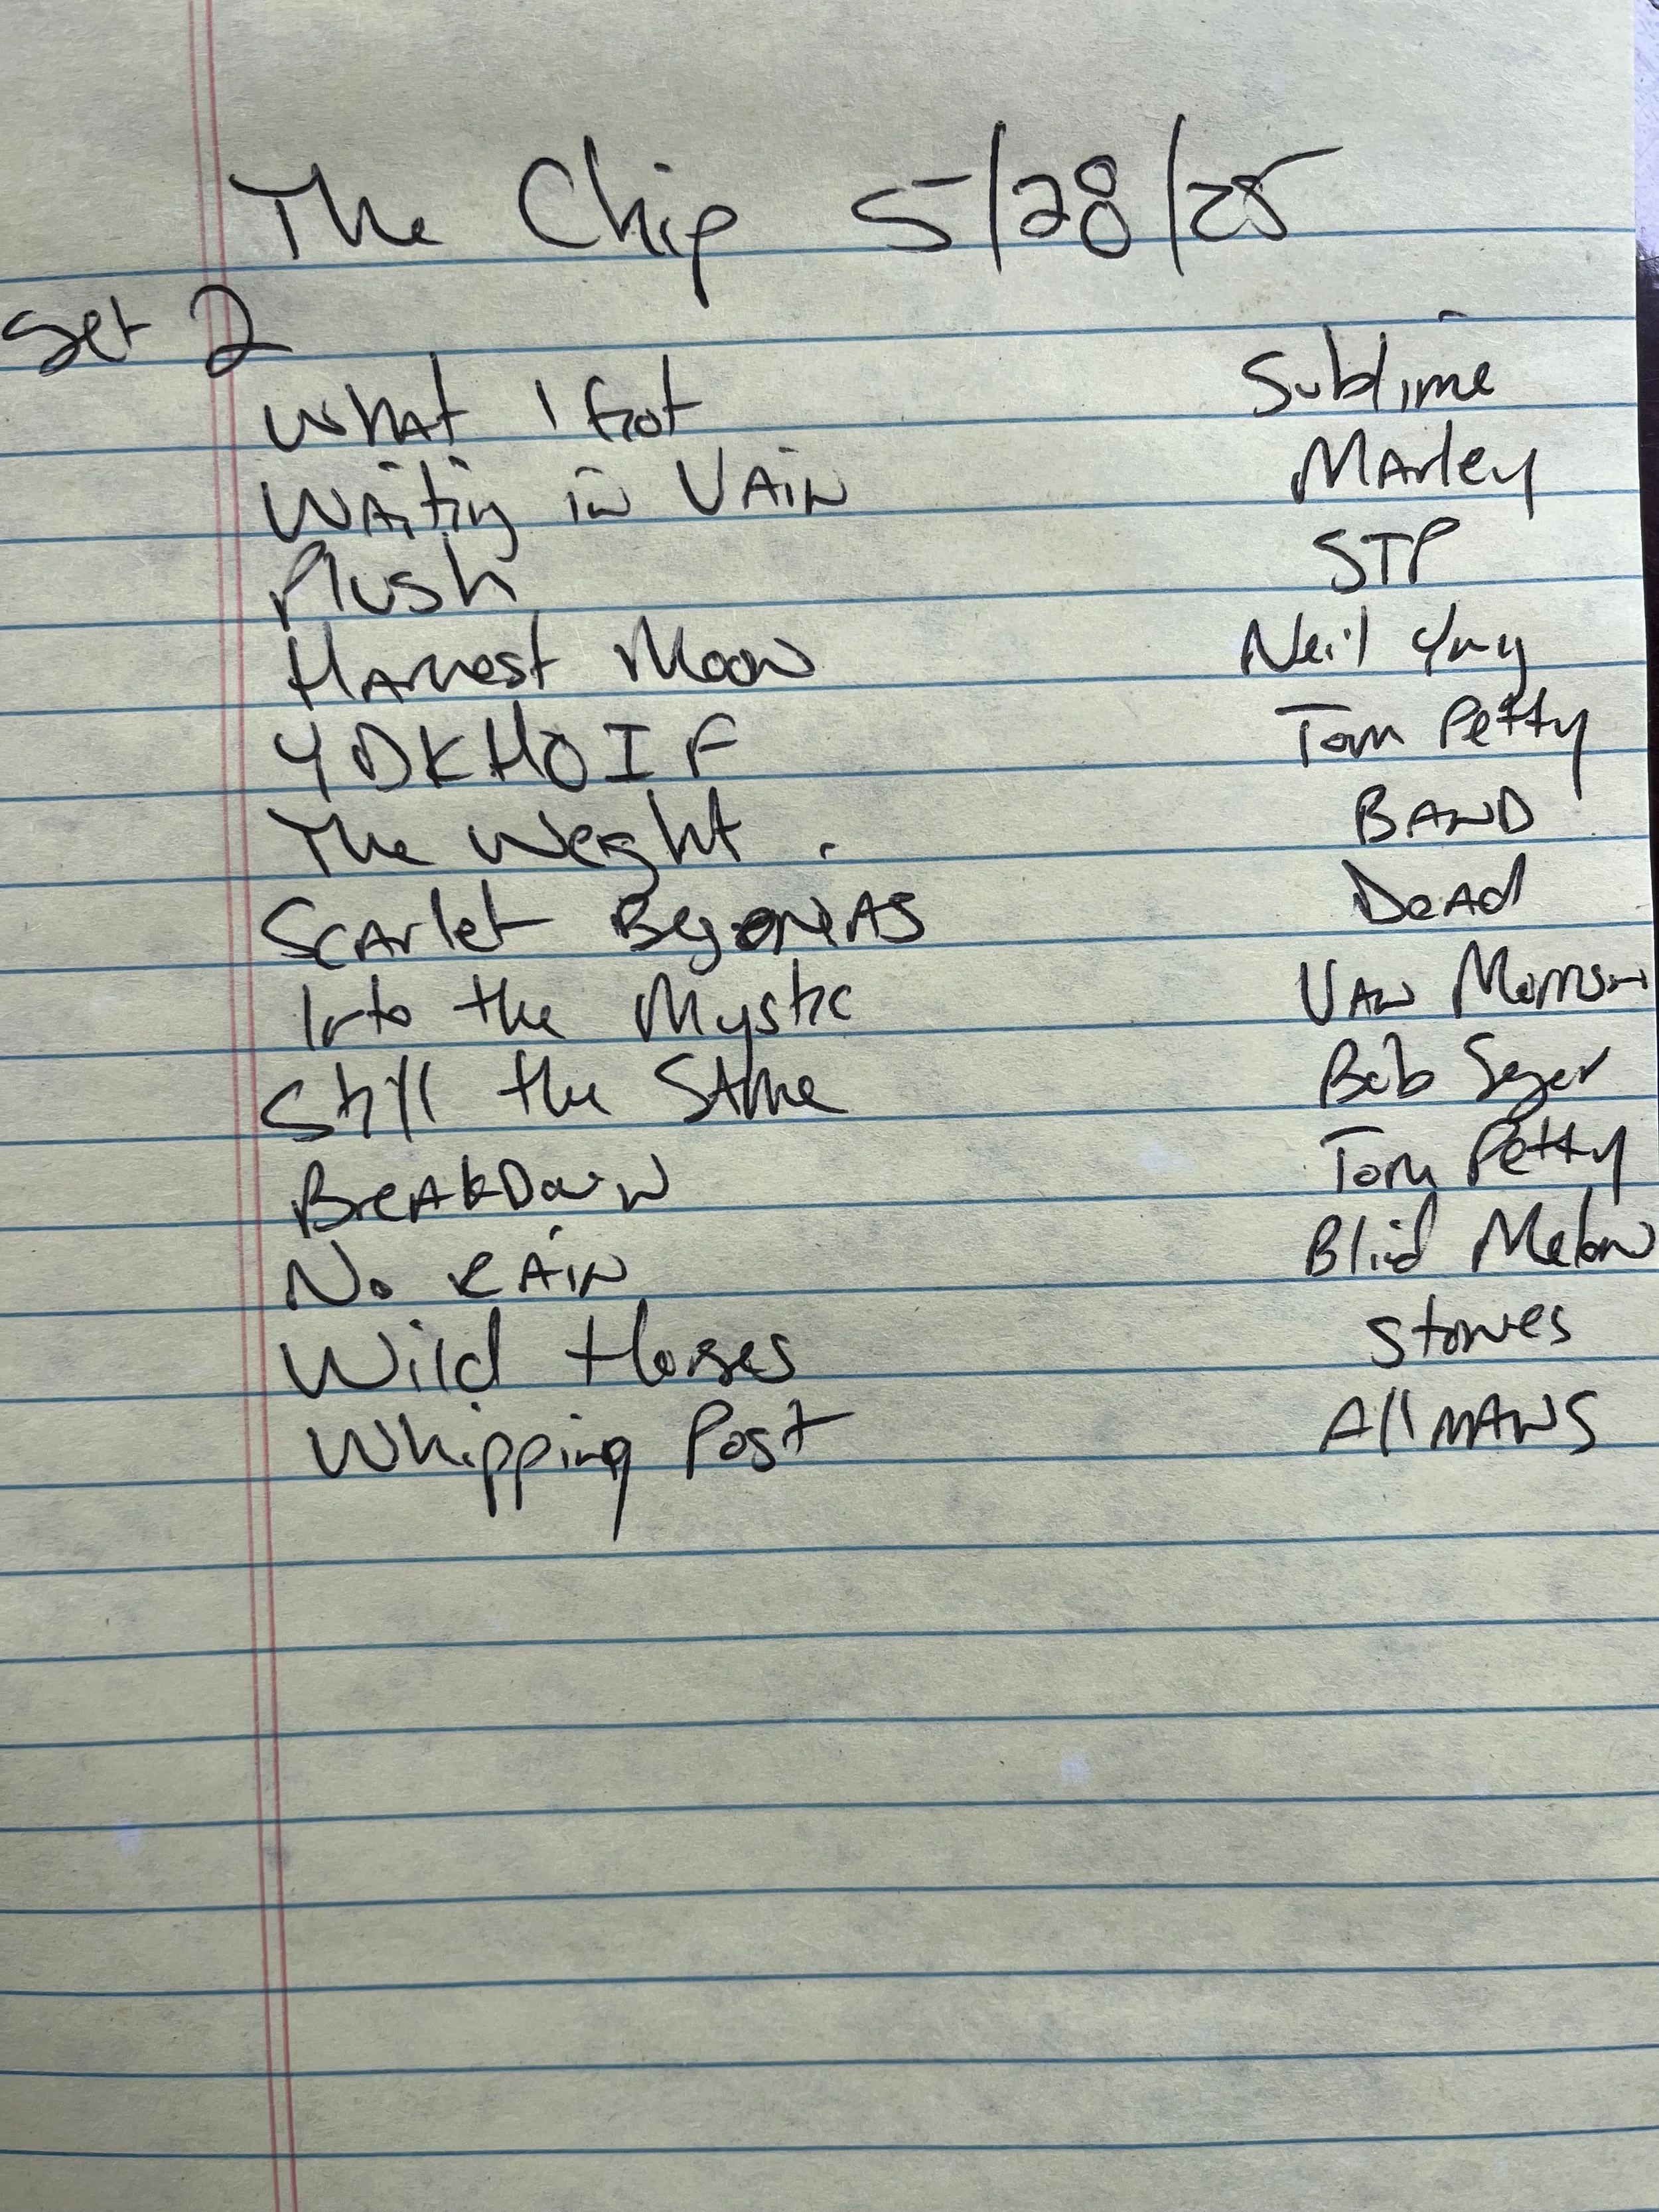 The Chip 5/28/25
Set 2
What I Got Sublime
Waiting in Vain Marley
Plush STP
Harvest Moon Neil Yng
YDKHOIF Tom Petty
The Weight BAND
Scarlet Begonias Dead
Into the Mystic Van Morrison
Still the Same Bob Seger
BreakDown Tom Petty
No Rain Blid Melon
Wild Horses Stones
Whipping Post Allmans